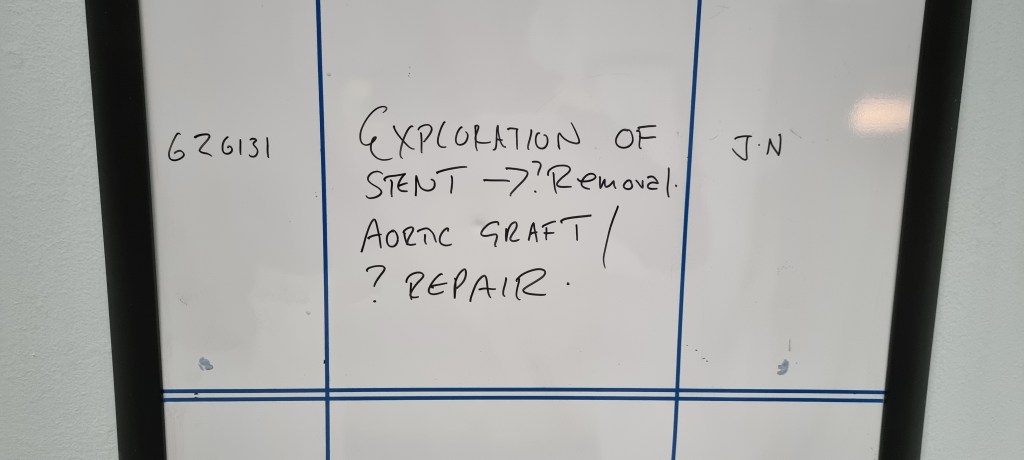 626131
EXPLORATION OF
STENT →? Removal.
AORTIC GRAFT /
? REPAIR.
J.N